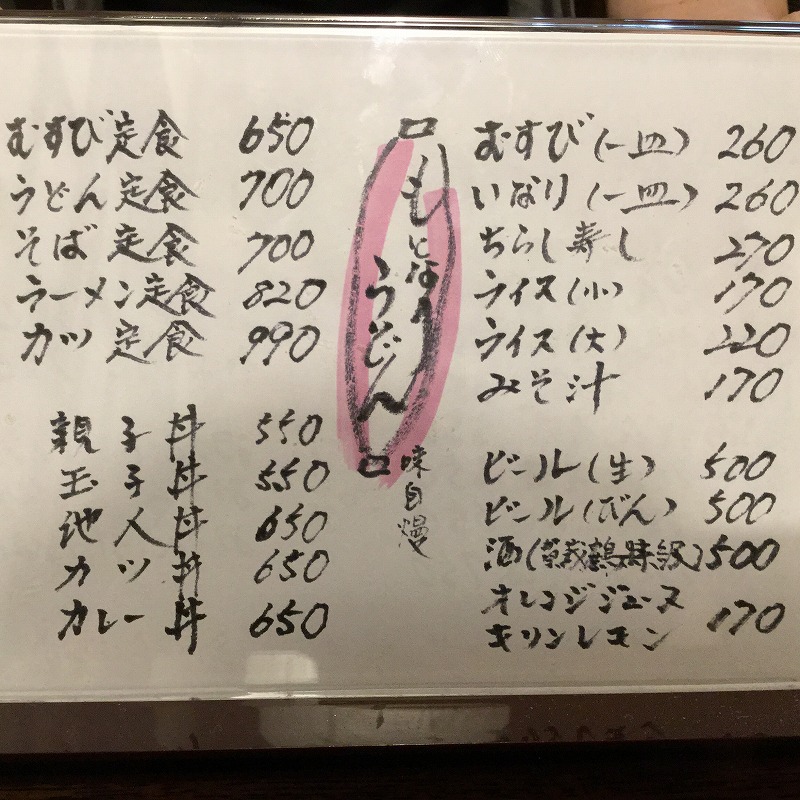 むすび定食 650
うどん定食 700
そば定食 700
ラーメン定食 820
カツ定食 990
親子丼 550
玉子丼 550
他人丼 650
カツ丼 650
カレー丼 650
もとなりうどん
味自慢
むすび(一皿) 260
いなり(一皿) 260
ちらし寿し 270
ライス(小) 170
ライス(大) 220
みそ汁 170
ビール(生) 500
ビール(びん) 500
酒(賀茂鶴特級) 500
オレンジジュース
キリンレモン 170